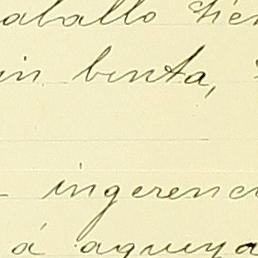 aballo tien
in benta,
ingerenci
á aqueya